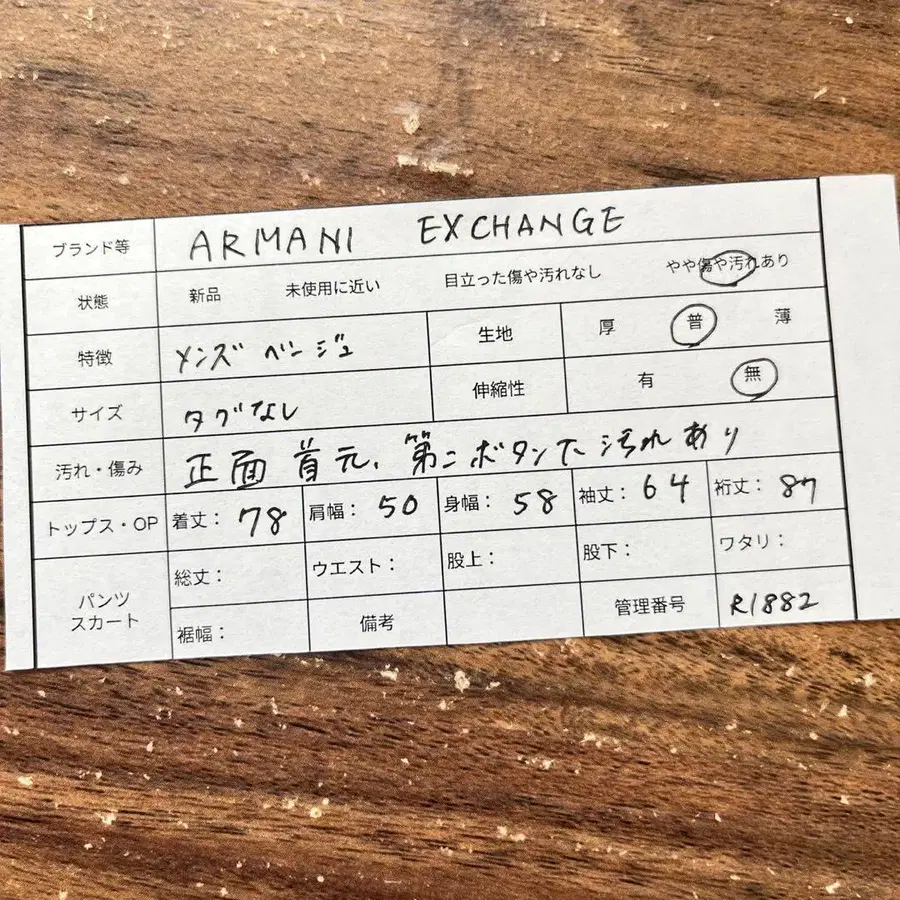 ブランド等 ARMANI EXCHANGE
状態 新品 未使用に近い 目立った傷や汚れなし やや傷や汚れあり
特徴 メンズ ベージュ 生地 厚 普 薄
サイズ タグなし 伸縮性 有 無
汚れ・傷み 正面首元、第二ボタン下汚れあり
トップス・OP 着丈: 78 肩幅: 50 身幅: 58 袖丈: 64 裄丈: 87
パンツ スカート 総丈: ウエスト: 股上: 股下: ワタリ:
裾幅: 備考 管理番号 R1882